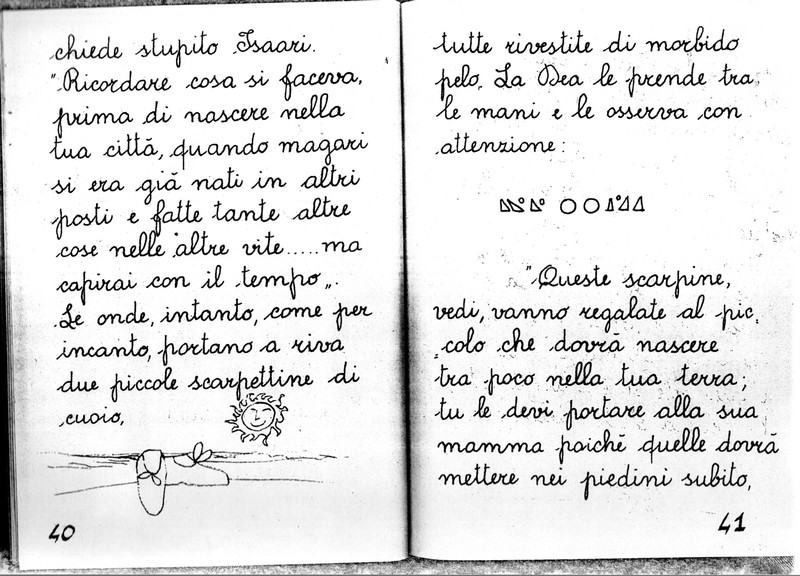 chiede stupito Isaari.
"Ricordare cosa si faceva,
prima di nascere nella
tua città, quando magari
si era già nati in altri
posti e fatte tante altre
cose nelle altre vite.....ma
capirai con il tempo".
Le onde, intanto, come per
incanto, portano a riva
due piccole scarpettine di
cuoio,
40
tutte rivestite di morbido
pelo. La Dea le prende tra
le mani e le osserva con
attenzione:
"Queste scarpine,
vedi, vanno regalate al pic,
,colo che dovrà nascere
tra poco nella tua terra;
tu le devi portare alla sua
mamma poichè quelle dovrà
mettere nei piedini subito,
41